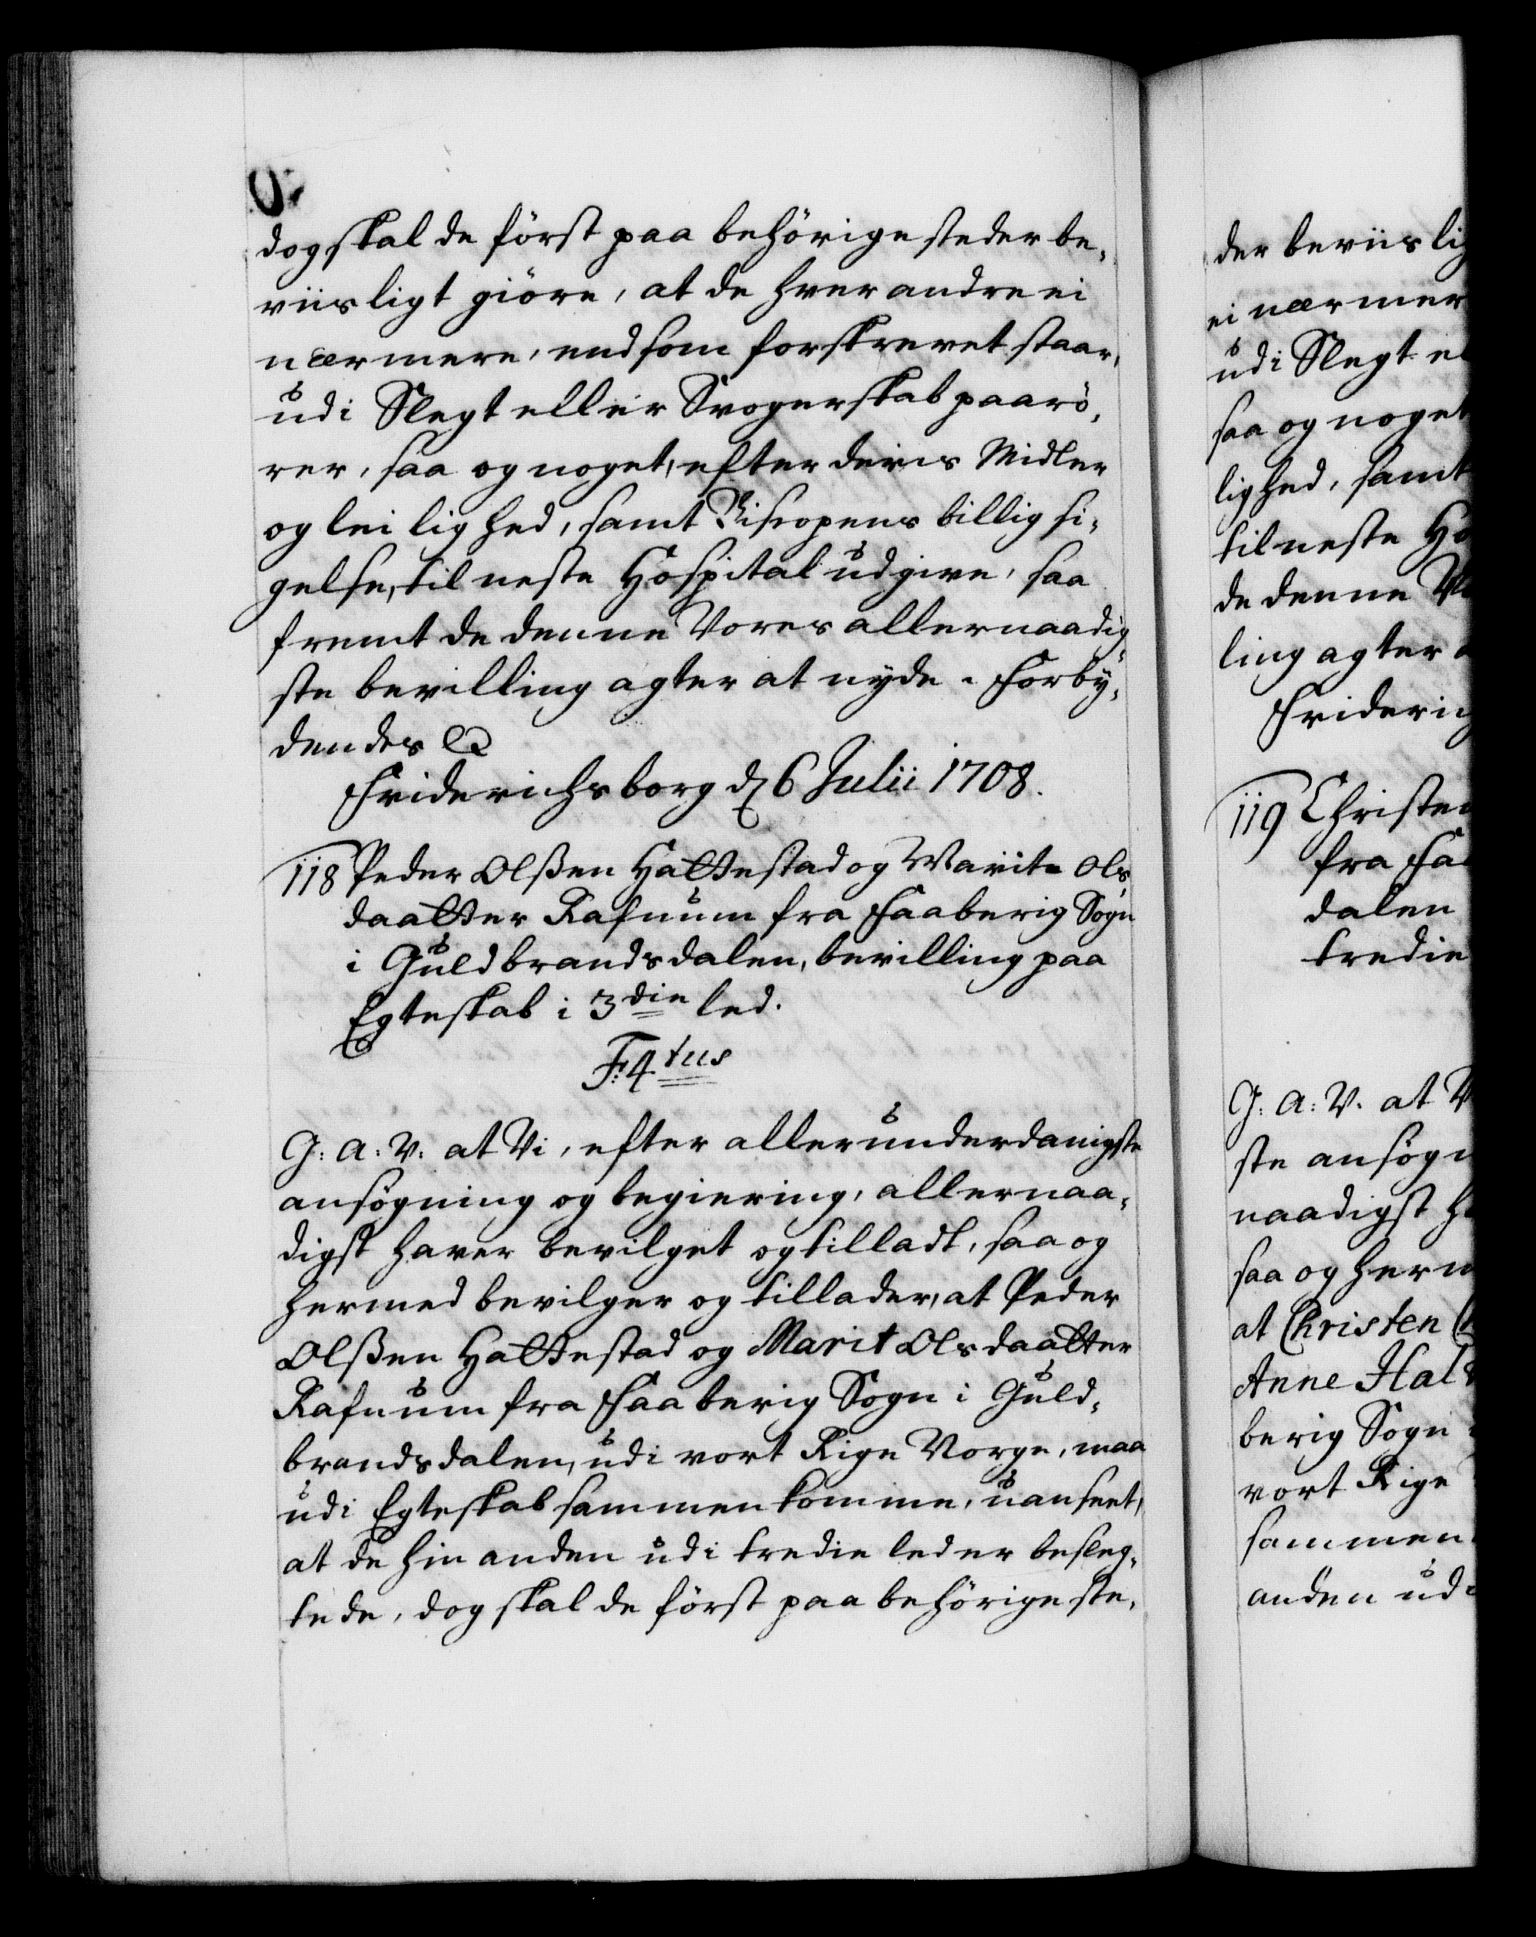 dog skal de först paa behörige steder be„
viisligt giöre, at de hver andre ei
nærmere, end som forskrevet staar,
udi Slegt eller Svogerskab paarö„
rer, saa og noget, efter deris Midler
og leilighed, samt Biscopens billig si„
gelse, til neste Hospital udgive, saa
fremt de denne Vores allernaadig„
ste bevilling agter at nyde. Forby„
dendes &
Friderichsborg d 6 Julii 1708.
118 Peder Olßen Hattestad og Marite Ols„
daatter Rafnum fra Faaberig Sogn
i Guldbrandsdalen, bevilling paa
Egteskab i 3die led.
F: 4tus
G: A: V: at Vi, efter allerunderdanigste
ansögning og begiering, allernaa„
digst haver bevilget og tilladt, saa og
hermed bevilger og tillader, at Peder
Olßen Hattestad og Marit Olsdaatter
Rafnum fra Faaberig Sogn i Guld„
brandsdalen, udi vort Rige Norge, maa
udi Egteskab sammenkomme, uanseet,
at de hin anden udi tredie led er besleg„
tede, dog skal de först paa behörige ste„
der beviislig
ei nærmer
udi Slegt el
saa og noget
lighed, samt
til neste Ho
de denne V
ling agter a
Friderich
119 Christen
fra Faa
dalen
tredie
G: A: V. at V
ste ansögn
naadigst ha
saa og herm
at Christen
Anne Hal
berig Sogn
vort Rige
sammen
anden udi